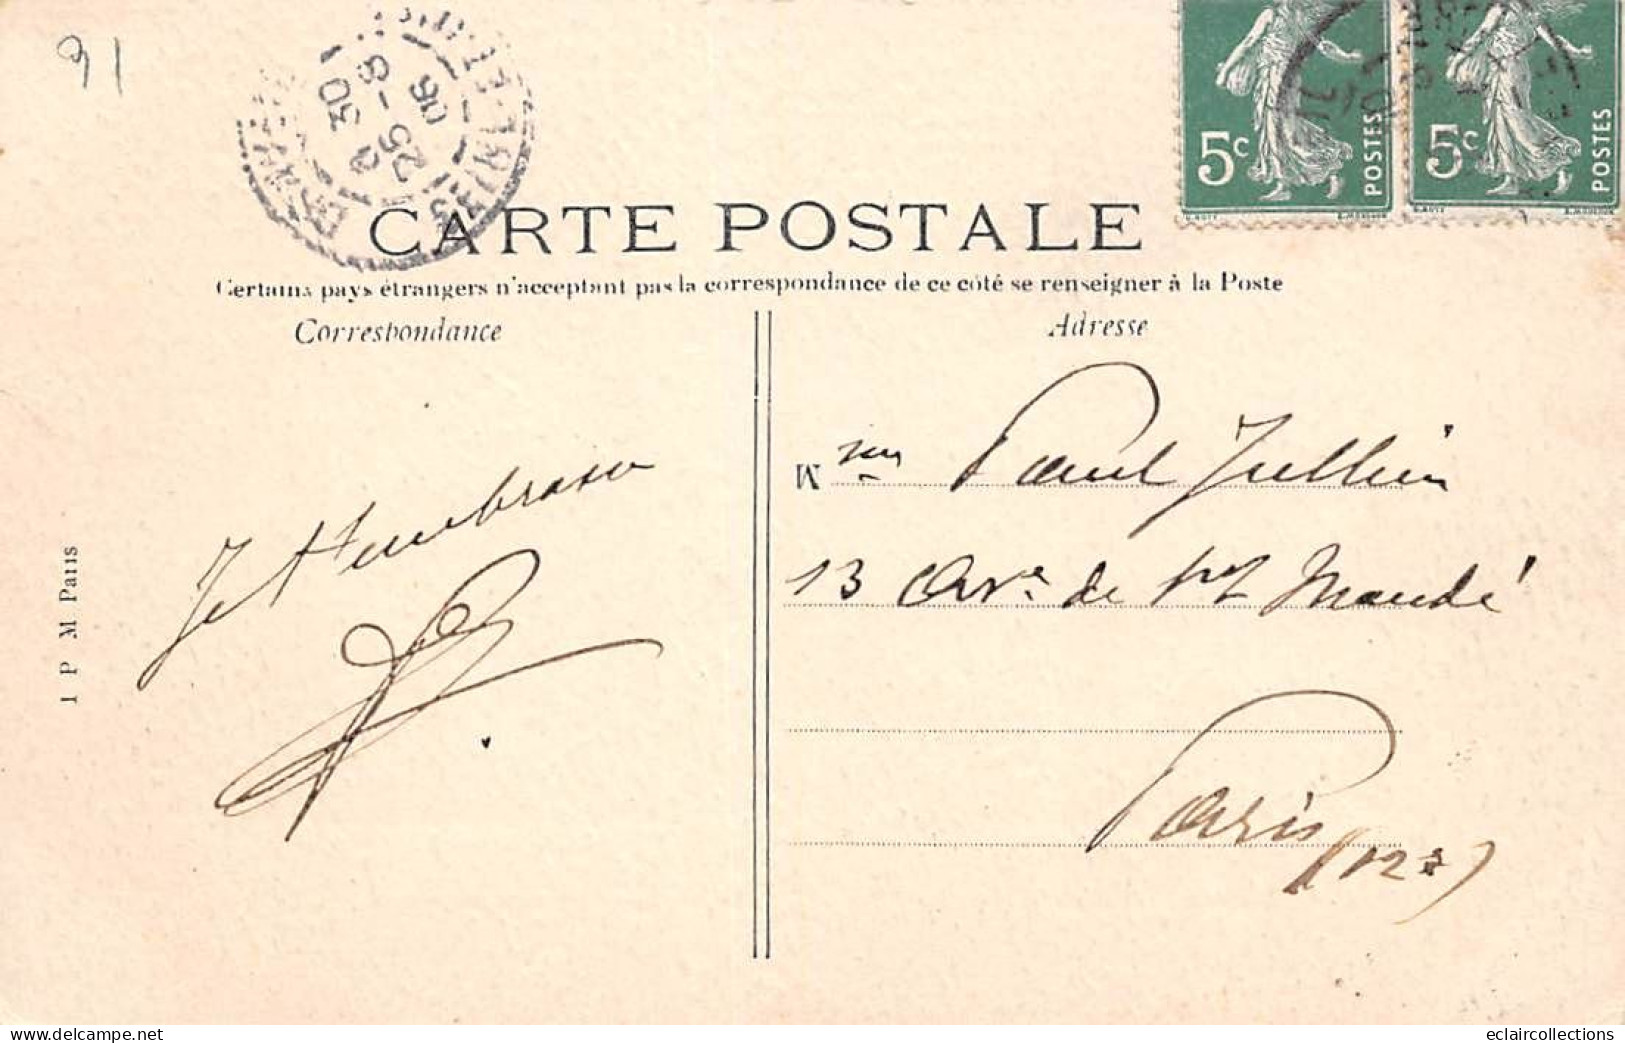 91
9 30
25 - 8
08
5c
POSTES
5c
POSTES
CARTE POSTALE
Certains pays étrangers n'acceptant pas la correspondance de ce côté se renseigner à la Poste
Correspondance
Adresse
Je t'embrasse
Msieur Paul Jullien
13 Ave de St Mandé
Paris
(12e)
I P M Paris
eclaircollections